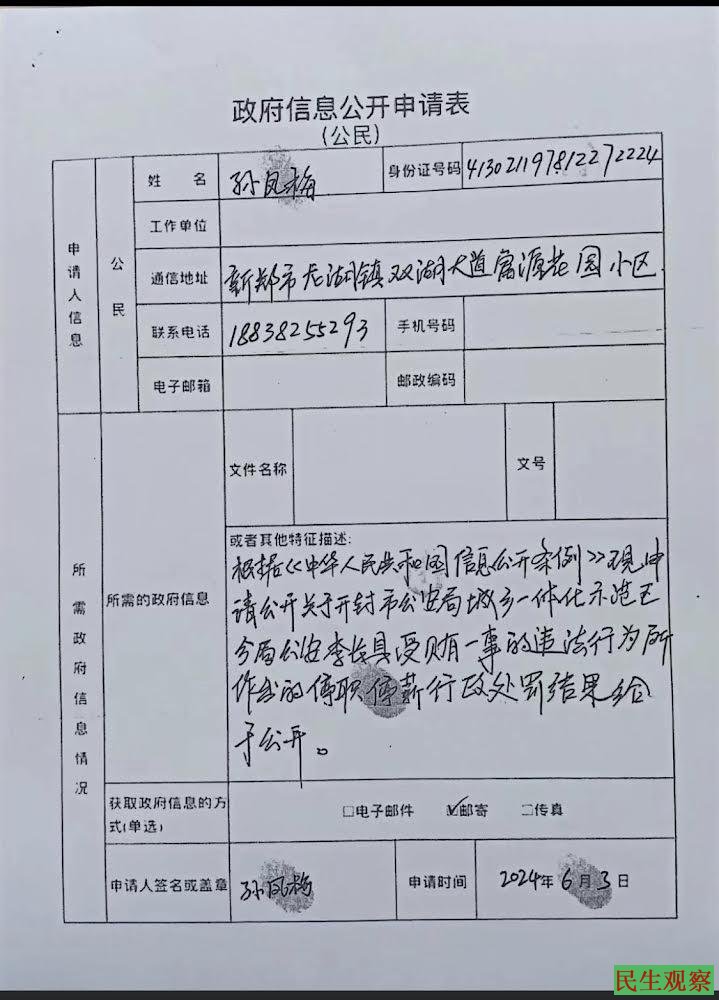 政府信息公开申请表
(公民)
申请人信息
公民
姓 名 孙凤梅 身份证号码 413021197812272224
工作单位
通信地址 新郑市龙湖镇双湖大道富源花园小区.
联系电话 18838255293 手机号码
电子邮箱 邮政编码
所需政府信息情况
所需的政府信息
文件名称 文号
或者其他特征描述:
根据《中华人民共和国信息公开条例》现申
请公开关于开封市公安局城乡一体化示范区
分局公安李长具受贿有一事的违法行为所
作出的停职停薪行政处罚结果给
予公开。
获取政府信息的方式(单选) □电子邮件 ☑邮寄 □传真
申请人签名或盖章 孙凤梅 申请时间 2024年6月3日
民生观察